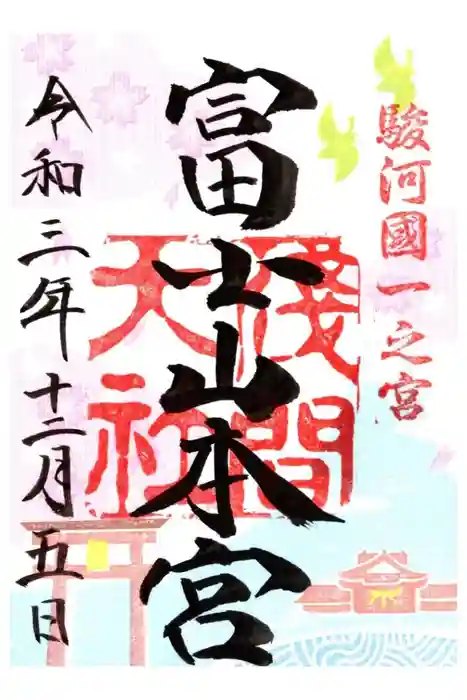 駿河國一之宮
富士山本宮
淺間大社
令和三年十二月五日